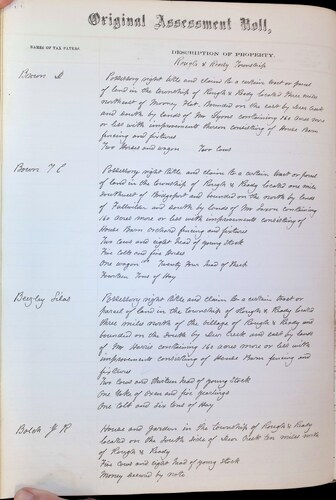 Original Assessment Roll,
NAMES OF TAX PAYERS.
DESCRIPTION OF PROPERTY.
Rough & Ready Township
Brown M
Possessory right title and claim to a certain tract or parcel
of land in the township of Rough & Ready located three miles
northwest of Mooney Flat. Bounded on the east by deer Creek
and south by lands of Mr Lyons containing 160 acres more
or less with improvement thereon consisting of House Barn
fencing and fixtures
Two Horses and wagon Two Cows
Brown T C
Possessory right title and claim to a certain tract or parcel
of land in the township of Rough & Ready located one mile
northwest of Bridgeport and bounded on the north by lands
of and south by lands of Mr containing
160 acres more or less with improvements consisting of
House Barn orchard fencing and fixtures
Two Cows and eight head of young stock
Five colts and five Horses
One wagon Twenty four head of Sheep
Fourteen Tons of Hay
Beazley Silas
Possessory right title and claim to a certain tract or
parcel of land in the township of Rough & Ready located
three miles north of the village of Rough & Ready and
bounded on the south by deer Creek and east by lands
of Mr Harris containing 160 acres more or less with
improvements consisting of House Barn fencing and
fixtures
Two Cows and thirteen head of young stock
One Yoke of Oxen and five yearlings
One Colt and six tons of Hay
Balch J R
House and garden in the Township of Rough & Ready
located on the South side of deer Creek six miles north
of Rough & Ready
Five Cows and eight head of young stock
Money secured by note